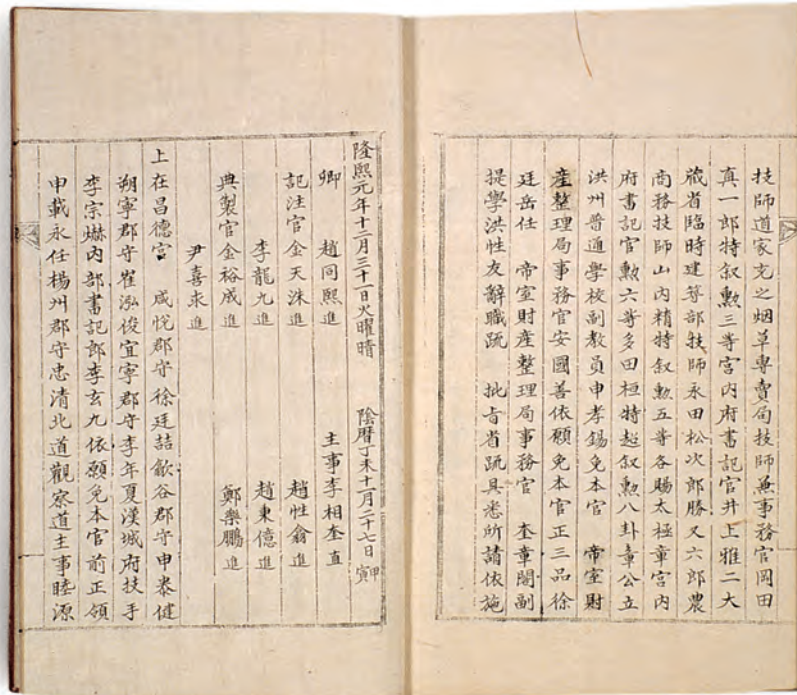 技師道家充之烟草專賣局技師兼事務官岡田
真一郎特叙勲三等宮内府書記官井上雅二大
蔵省臨時建築部技師永田松次郎勝又六郎農
商務技師山内精特叙勲五等各賜太極章宮内
府書記官勲六等多田桓特超叙勲八卦章公立
洪州普通學校副教員申孝錫免本官　帝室財
產整理局事務官安國善依願免本官正三品徐
廷岳任　帝室財產整理局事務官　奎章閣副
提學洪性友辭職疏　批旨省疏具悉所請依施
隆熙元年十二月三十一日火曜晴　陰曆丁未十一月二十七日甲寅
卿　趙同熙進　主事李相奎直
記注官金天洙進　趙性翕進
李龍九進　趙東億進
典製官金裕成進　鄭樂鵬進
尹喜求進
上在昌德宮　咸悅郡守徐廷喆歙谷郡守申泰健
朔寧郡守崔泓俊宜寧郡守李年夏漢城府技手
李宗爀内部書記郎李玄九依願免本官前正領
申載永任楊州郡守忠清北道觀察道主事睦源